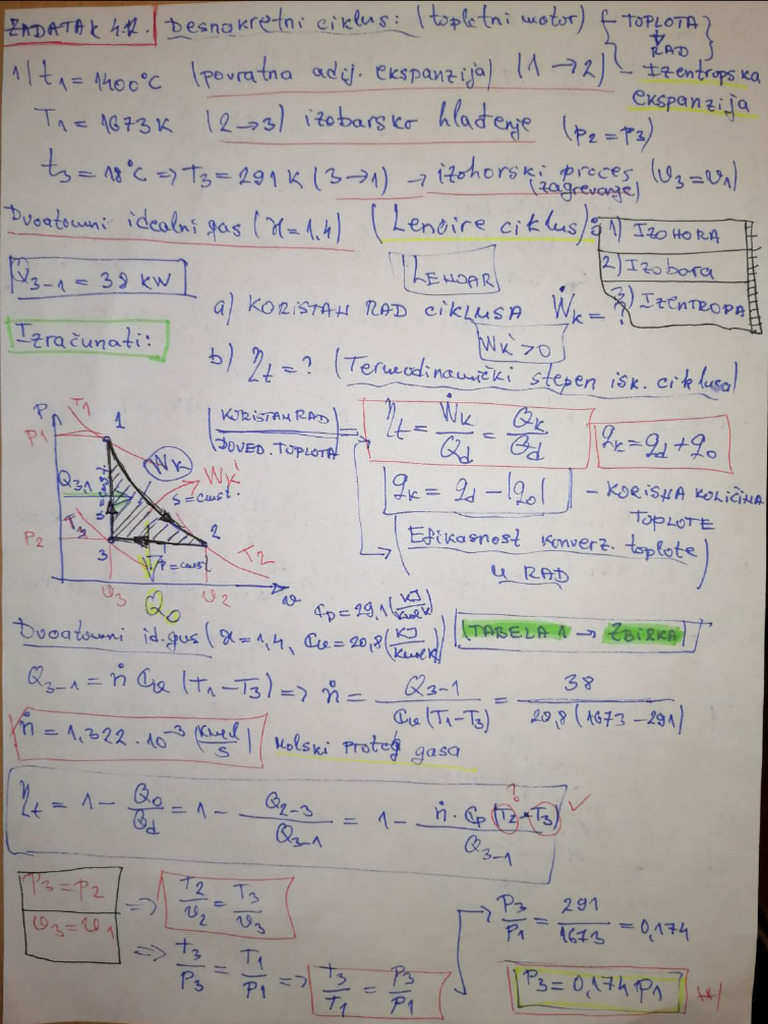 ZADATAK 4.12. Desnokretni ciklus: (toplotni motor) { TOPLOTA
RAD }
1) t1 = 1400°C (povratna adij. ekspanzija) (1 → 2) - Izentropska
ekspanzija
T1 = 1673 K (2→3) izobarsko hlađenje (p2 = p3)
t3 = 18°C => T3 = 291 K (3→1) → izohorski proces (v3 = v1)
(zagrevanje)
Dvoatomni idealni gas (ϰ=1.4) (Lenoire ciklus):
1) IZOHORA
2) Izobora
3) IZENTROPA
Q̇3-1 = 38 kW
LENOAR
a) KORISTAN RAD CIKLUSA Ẇk = ?
Wk > 0
Izračunati:
b) ηt = ? (Termodinamički stepen isk. ciklusa)
P T1 1
P1
Wk
Wk
Q3-1
s=const.
T3
P2 3 2
p=const T2
v3 v2 v
Q0
KORISTAN RAD / DOVED. TOPLOTA = ηt = Ẇk/Q̇d = Q̇k/Q̇d
qk = qd + q0
qk = qd - |q0| - KORISNA KOLIČINA
TOPLOTE
(Efikasnost konverz. toplote
u RAD)
Cp = 29,1 (kJ/kmolK)
Dvoatomni id. gas (ϰ = 1,4, Cv = 20,8 (kJ/kmolK)) (TABELA 1 → ZBIRKA)
Q3-1 = ṅ Cv (T1 - T3) => ṅ = Q3-1 / Cv (T1 - T3) = 38 / 20,8 (1673 - 291)
ṅ = 1,322 · 10⁻³ (kmol/s) Molski protok gasa
ηt = 1 - Q0/Qd = 1 - Q2-3/Q3-1 = 1 - ṅ · Cp (T2 - T3) / Q3-1 ? ✓
p3 = p2 => T2/v2 = T3/v3
v3 = v1 => T3/p3 = T1/p1 => T3/T1 = p3/p1
p3/p1 = 291/1673 = 0,174
p3 = 0,174 p1